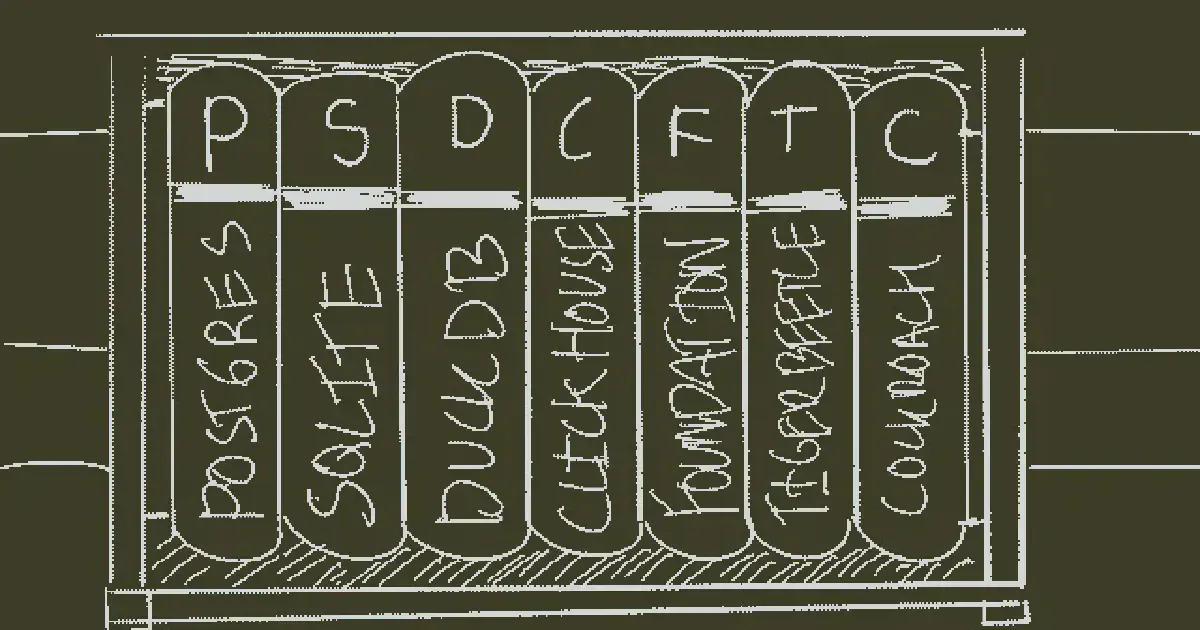 P S D C F T C
POSTGRES
SQLITE
DUCKDB
CLICKHOUSE
FOUNDATION
TIGERBEETLE
COCKROACH